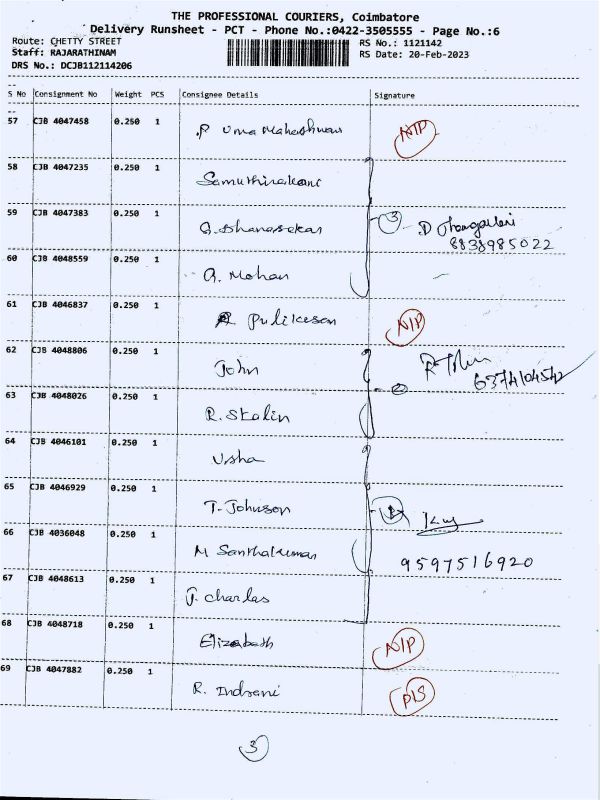 THE PROFESSIONAL COURIERS, Coimbatore
Delivery Runsheet - PCT - Phone No.:0422-3505555 - Page No.:6
Route: CHETTY STREET RS No.: 1121142
Staff: RAJARATHINAM RS Date: 20-Feb-2023
DRS No.: DCJB112114206
S No Consignment No Weight PCS Consignee Details Signature
57 CJB 4047458 0.250 1 P Uma Maheshwari N/P
58 CJB 4047235 0.250 1 Samuthirakani
59 CJB 4047383 0.250 1 G. Dhanasekar 3 D
8838985022
60 CJB 4048559 0.250 1 G. Mohan
61 CJB 4046837 0.250 1 Pulikesan N/P
62 CJB 4048806 0.250 1 John
6374104542
63 CJB 4048026 0.250 1 R. Stalin
64 CJB 4046101 0.250 1 Usha
65 CJB 4046929 0.250 1 T. Johnson
66 CJB 4036048 0.250 1 M Santhakumar 9597516920
67 CJB 4048613 0.250 1 J. charlas
68 CJB 4048718 0.250 1 Elizabeth N/P
69 CJB 4047882 0.250 1 R. Indrani
3